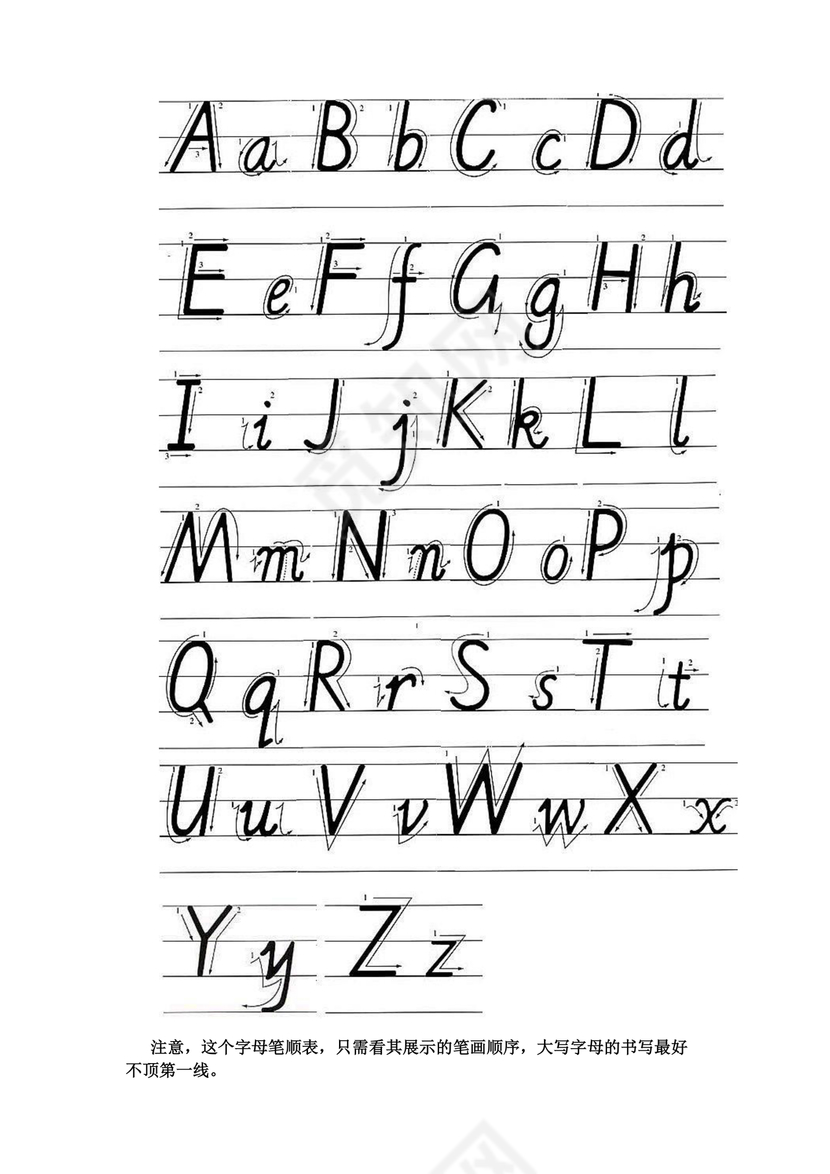 A a B b C c D d
E e F f G g H h
I i J j K k L l
M m N n O o P p
Q q R r S s T t
U u V v W w X x
Y y Z z
注意，这个字母笔顺表，只需看其展示的笔画顺序，大写字母的书写最好
不顶第一线。
觅知网